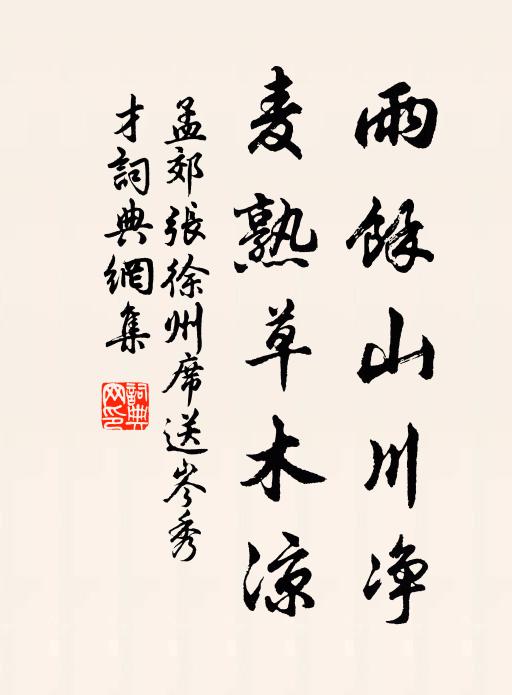 雨餘山川净
麦熟草木凉
孟郊張徐州席送岑秀
才詞典網集
詞典網印